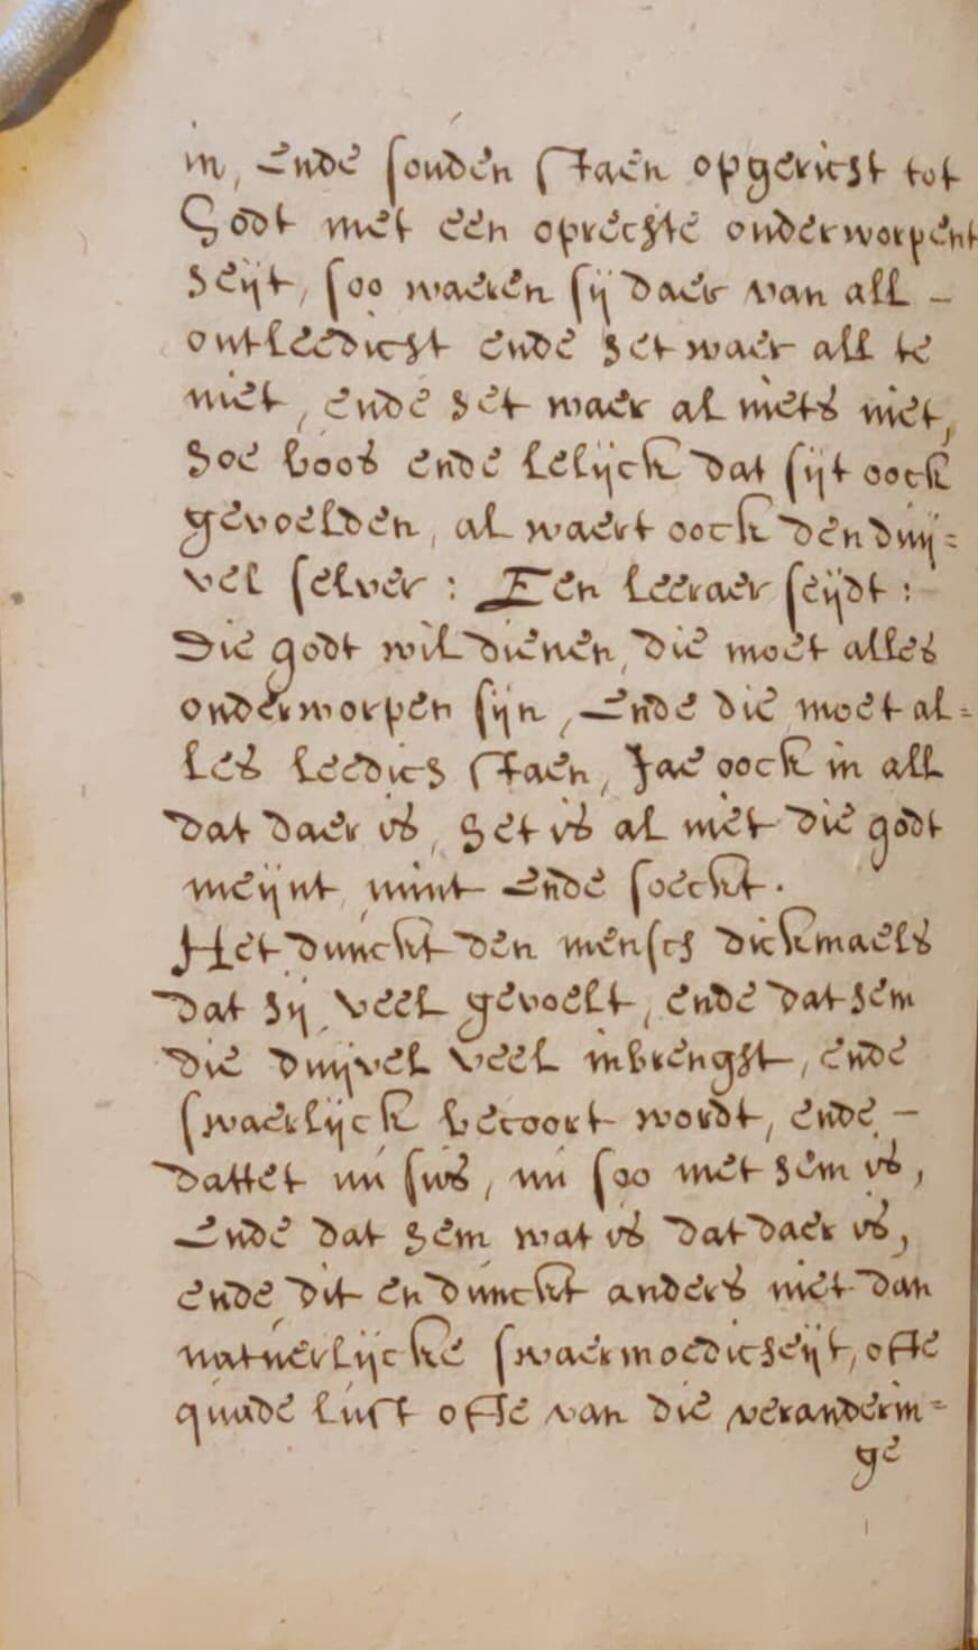 in, ende souden staen opgericht tot
Godt met een oprechte onderworpent
heijt, soo waeren sij daer van all -
ontleedicht ende het waer all te
niet, ende het waer al niets niet,
hoe boos ende lelijck dat sijt oock
gevoelden, al waert oock den duij=
vel selver : Een leeraer seijdt :
Die godt wil dienen, die moet alles
onderworpen sijn, Ende die moet al=
les leedich staen, Jae oock in all
dat daer is, het is al niet die godt
meijnt, mint Ende soeckt.
Het dunckt den mensch dickmaels
dat hij veel gevoelt, ende dat hem
die duijvel veel inbrenght, ende
swaerlijck becoort wordt, ende -
dattet nu sus, nu soo met hem is,
Ende dat hem wat is dat daer is,
ende dit en dunckt anders niet dan
natuerlijcke swaermoedicheijt, ofte
quade lust ofte van die veranderin=
ge